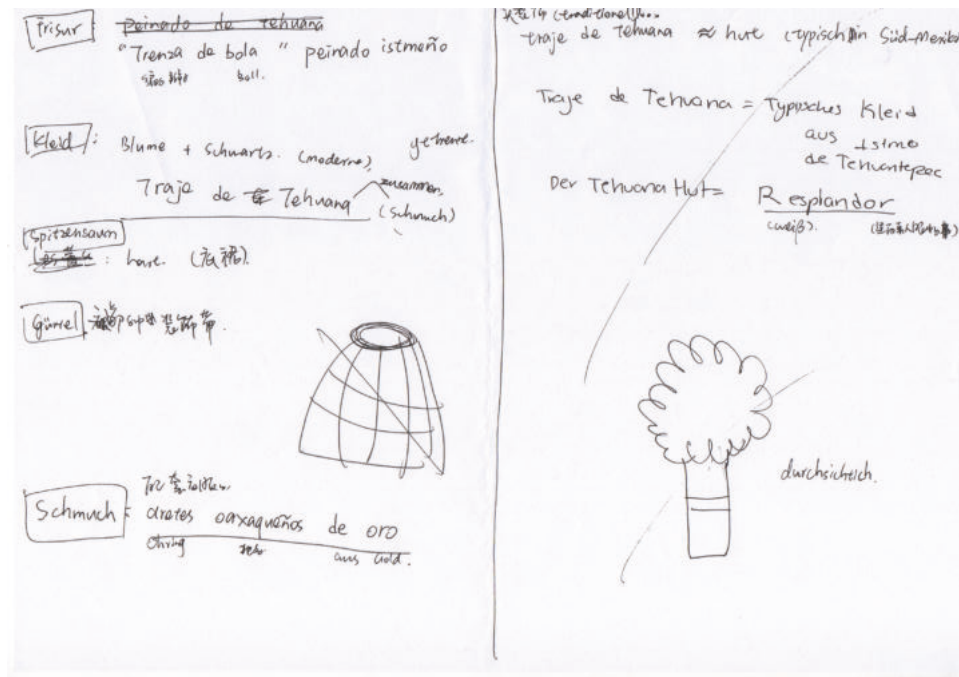 Frisur
Peinado de tehuana
"Trenza de bola" peinado istmeño
boll.
Kleid: Blume + Schwarts. (moderne), getrennt.
Traje de Tehuana
zusammen,
(Schmuch)
Spitzensaum : (底裙).
Gürtel
Schmuch : aretes oaxaqueños de oro
Ohring
aus Gold.
(traditionell)
traje de Tehuana ≈ hut (typisch in Süd-Mexiko
Traje de Tehuana = Typisches Kleid
aus Istmo
de Tehuantepec
Der Tehuana Hut = Resplandor
(weiß).
durchsichtich.